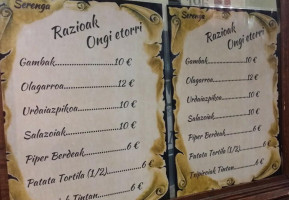 Serenga
Razioak
Ongi etorri
Gambak 10 €
Olagarroa 12 €
Urdaiazpikoa 10 €
Salazoiak 10 €
Piper Berdeak 6 €
Patata Tortila (1/2) 6 €
Tintan 6 €
Serenga
Razioak
Ongi etorri
Gambak 10 €
Olagarroa 12 €
Urdaiazpikoa 10 €
Salazoiak 10 €
Piper Berdeak 6 €
Patata Tortila (1/2) 6 €
Txipiroiak Tintan 6 €